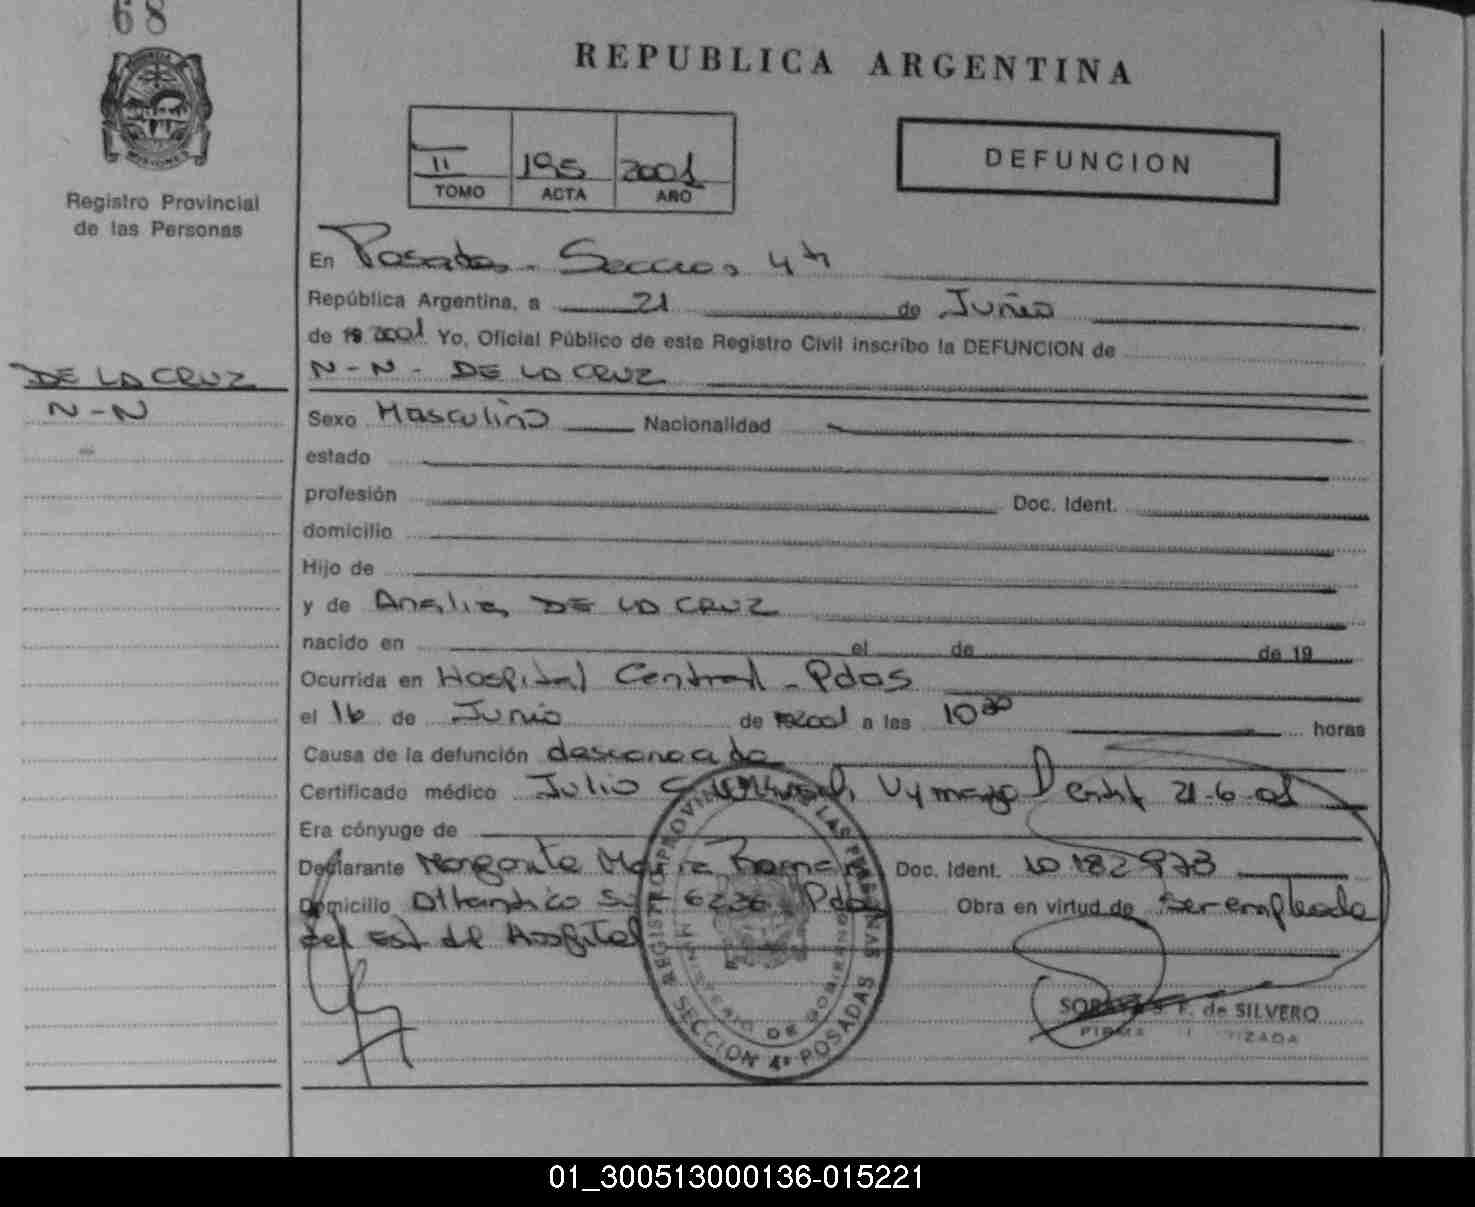 68
REPUBLICA ARGENTINA
II 195 2001
TOMO ACTA AÑO
DEFUNCION
Registro Provincial
de las Personas
En Posadas - Seccion 4ta
República Argentina, a 21 de Junio
de 19 2001 Yo, Oficial Público de este Registro Civil inscribo la DEFUNCION de
N-N- DE LA CRUZ
DE LA CRUZ
N-N
Sexo Masculino Nacionalidad
estado
profesión Doc. Ident.
domicilio
Hijo de
y de Analia DE LA CRUZ
nacido en el de de 19
Ocurrida en Hospital Central - Pdas
el 16 de Junio de 2001 a las 10 30 horas
Causa de la defunción desconocida
Certificado médico Julio 21-6-01
Era cónyuge de
Declarante Margarita Maria Doc. Ident. 10 182 973
Domicilio 6236 Pdas Obra en virtud de ser empleada
del Est del Hospital
REGISTRO PROVINCIAL DE LAS PERSONAS
MINISTERIO DE GOBIERNO
SECCION 4ª POSADAS
F. de SILVERO
01_300513000136-015221